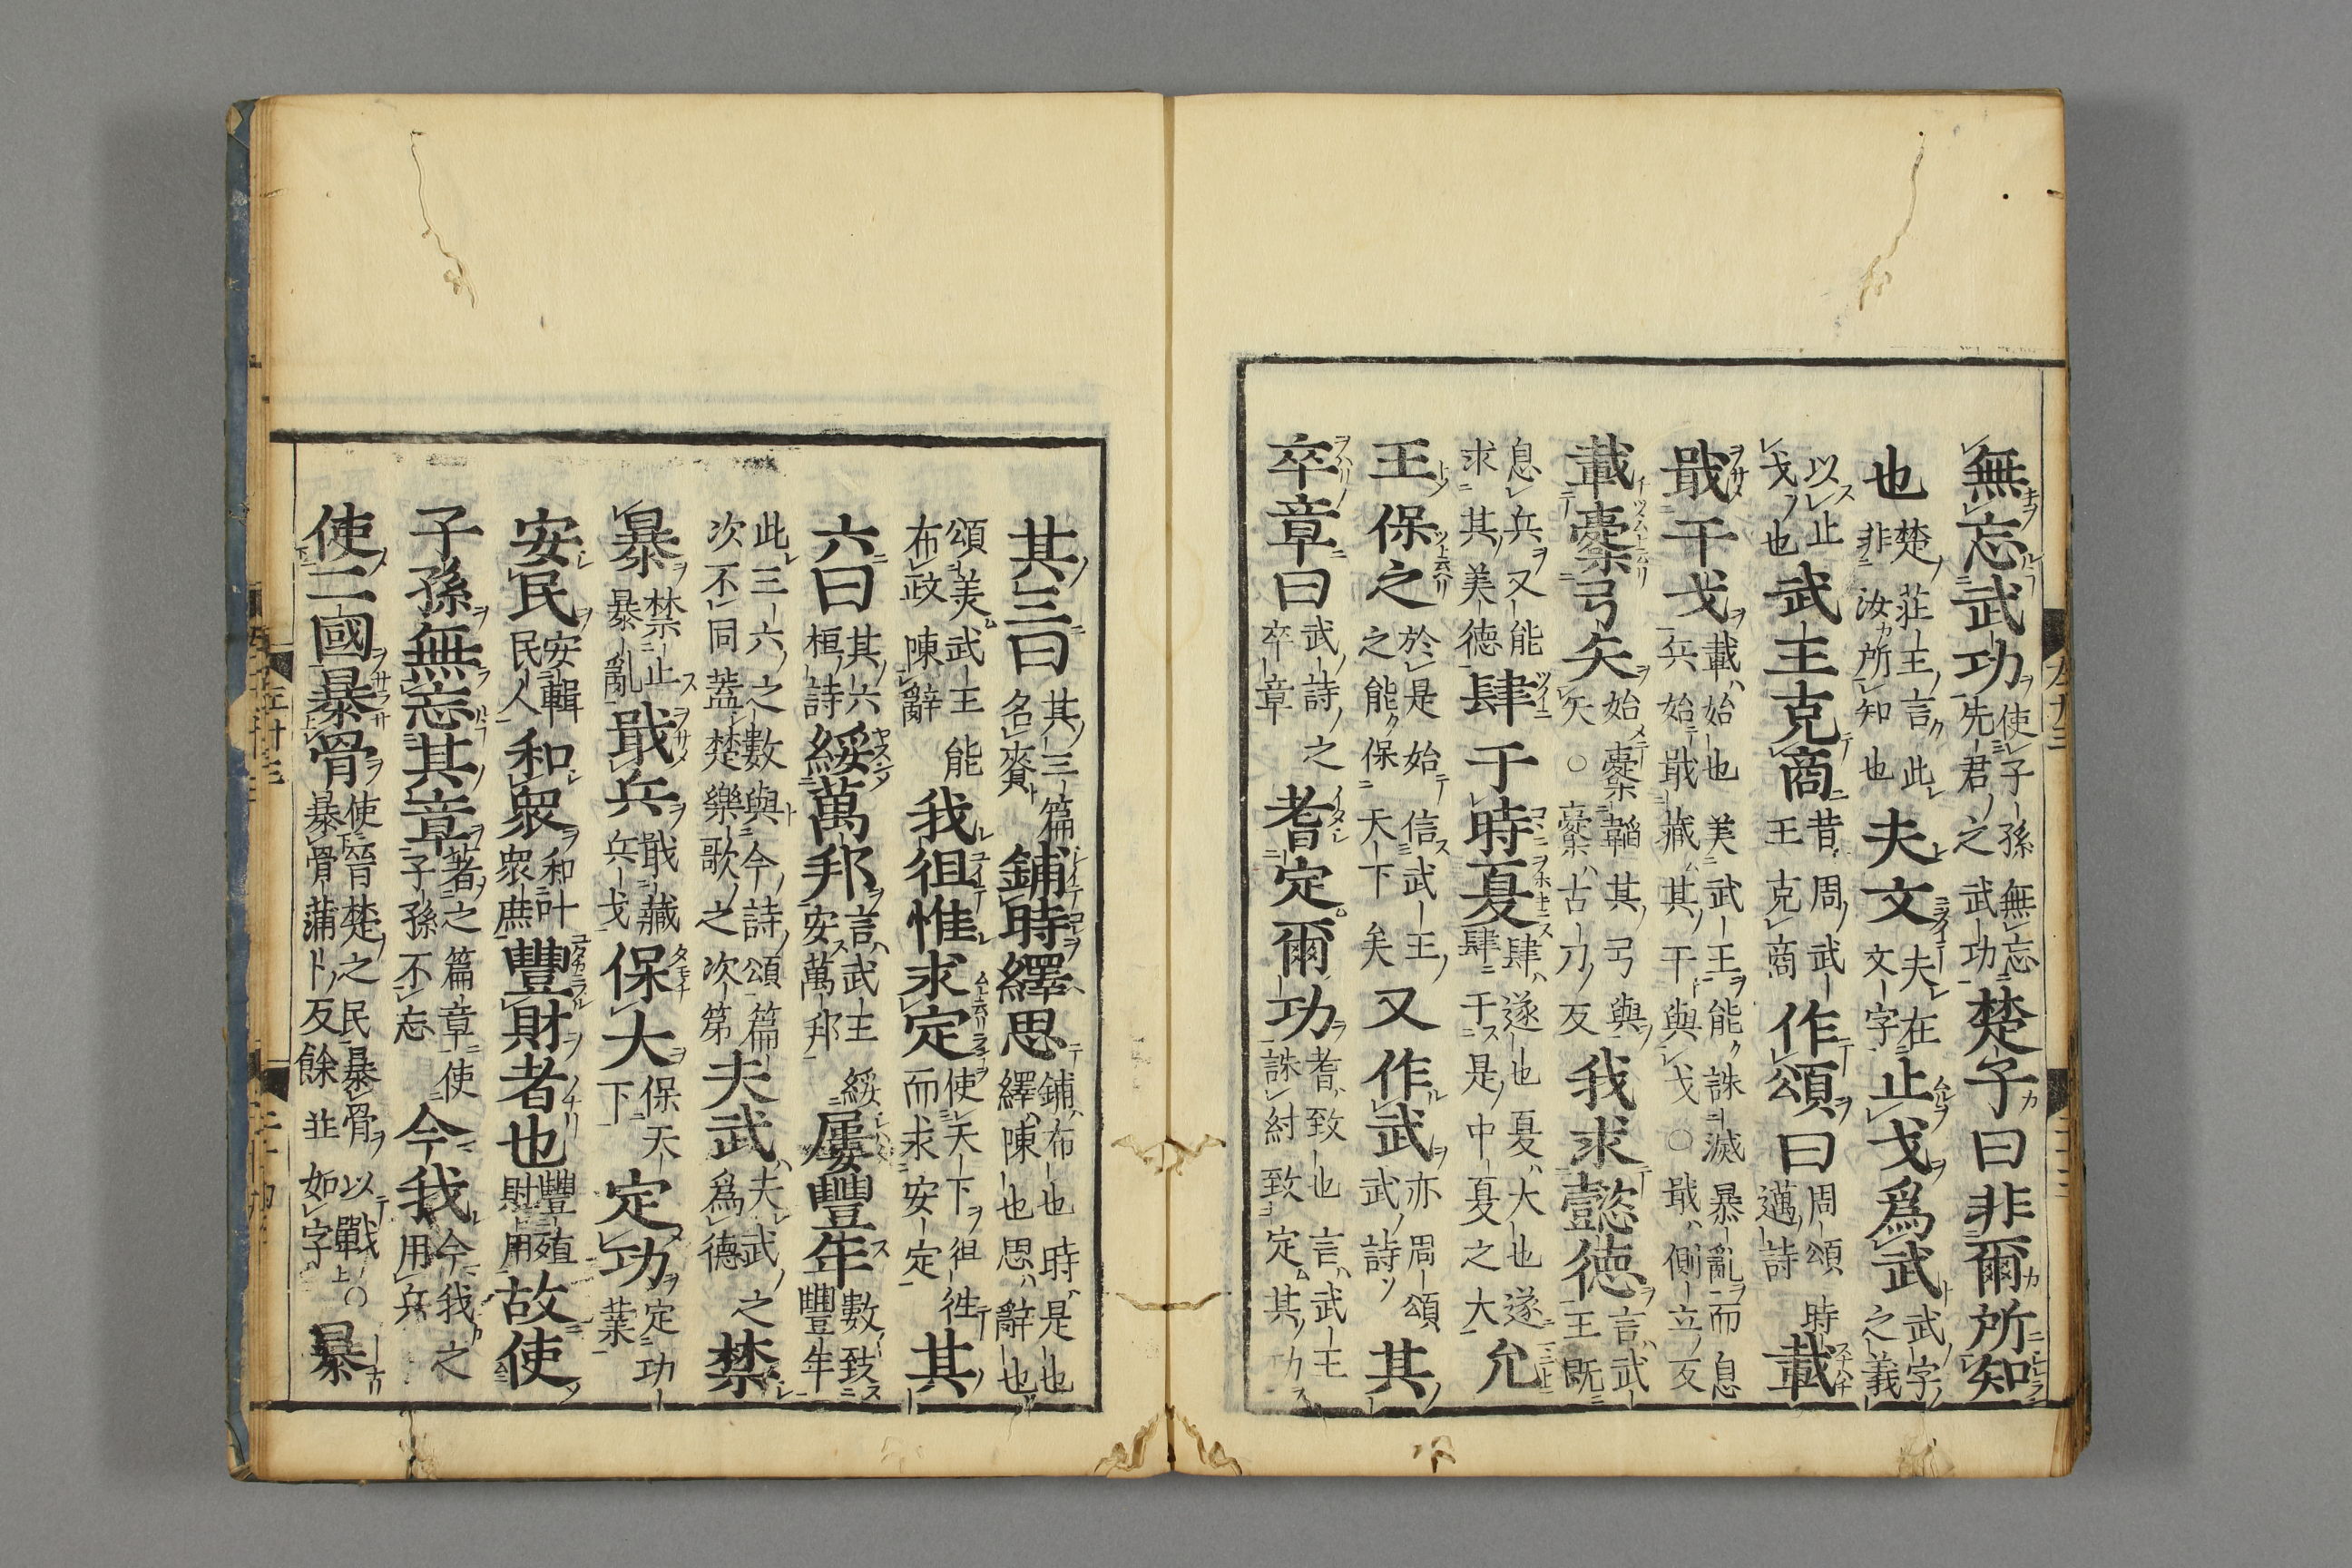 無忘武功使子孫無忘先君之武功楚子曰非爾所知
也楚莊王言此非汝所知也夫文夫在文字止戈爲武武字之義
以止戈也武王克商昔周武王克商作頌曰周頌時邁詩載
戢干戈載始也美武王能誅滅暴亂而息兵始戢藏其干與戈○戢側立反
載櫜弓矢始櫜韜其弓與矢○櫜古刀反我求懿德言武王既
息兵又能求其美德肆于時夏肆遂也夏大也遂肆于是中夏之大允
王保之於是始信武王之能保天下矣又作武亦周頌武詩其
卒章曰武詩之卒章耆定爾功耆致也言武王誅紂致定其功
其三曰其三篇名賚鋪時繹思鋪布也時是也繹陳也思辭也
頌美武王能布政陳辭我徂惟求定使天下徂往而求安定其
六曰其六桓詩綏萬邦言武王綏安萬邦屢豐年數致豐年
此三六之數與今詩頌篇次不同蓋楚樂歌之次第夫武夫武之爲德禁
暴禁止暴亂戢兵戢藏兵戈保大保天下定功定功業
安民安輯民人和衆和叶衆庶豐財者也豐殖財用故使
子孫無忘其章著之篇章使子孫不忘今我今我之用兵
使二國暴骨使晉楚之民暴骨以戰○暴骨蒲卜反餘並如字暴